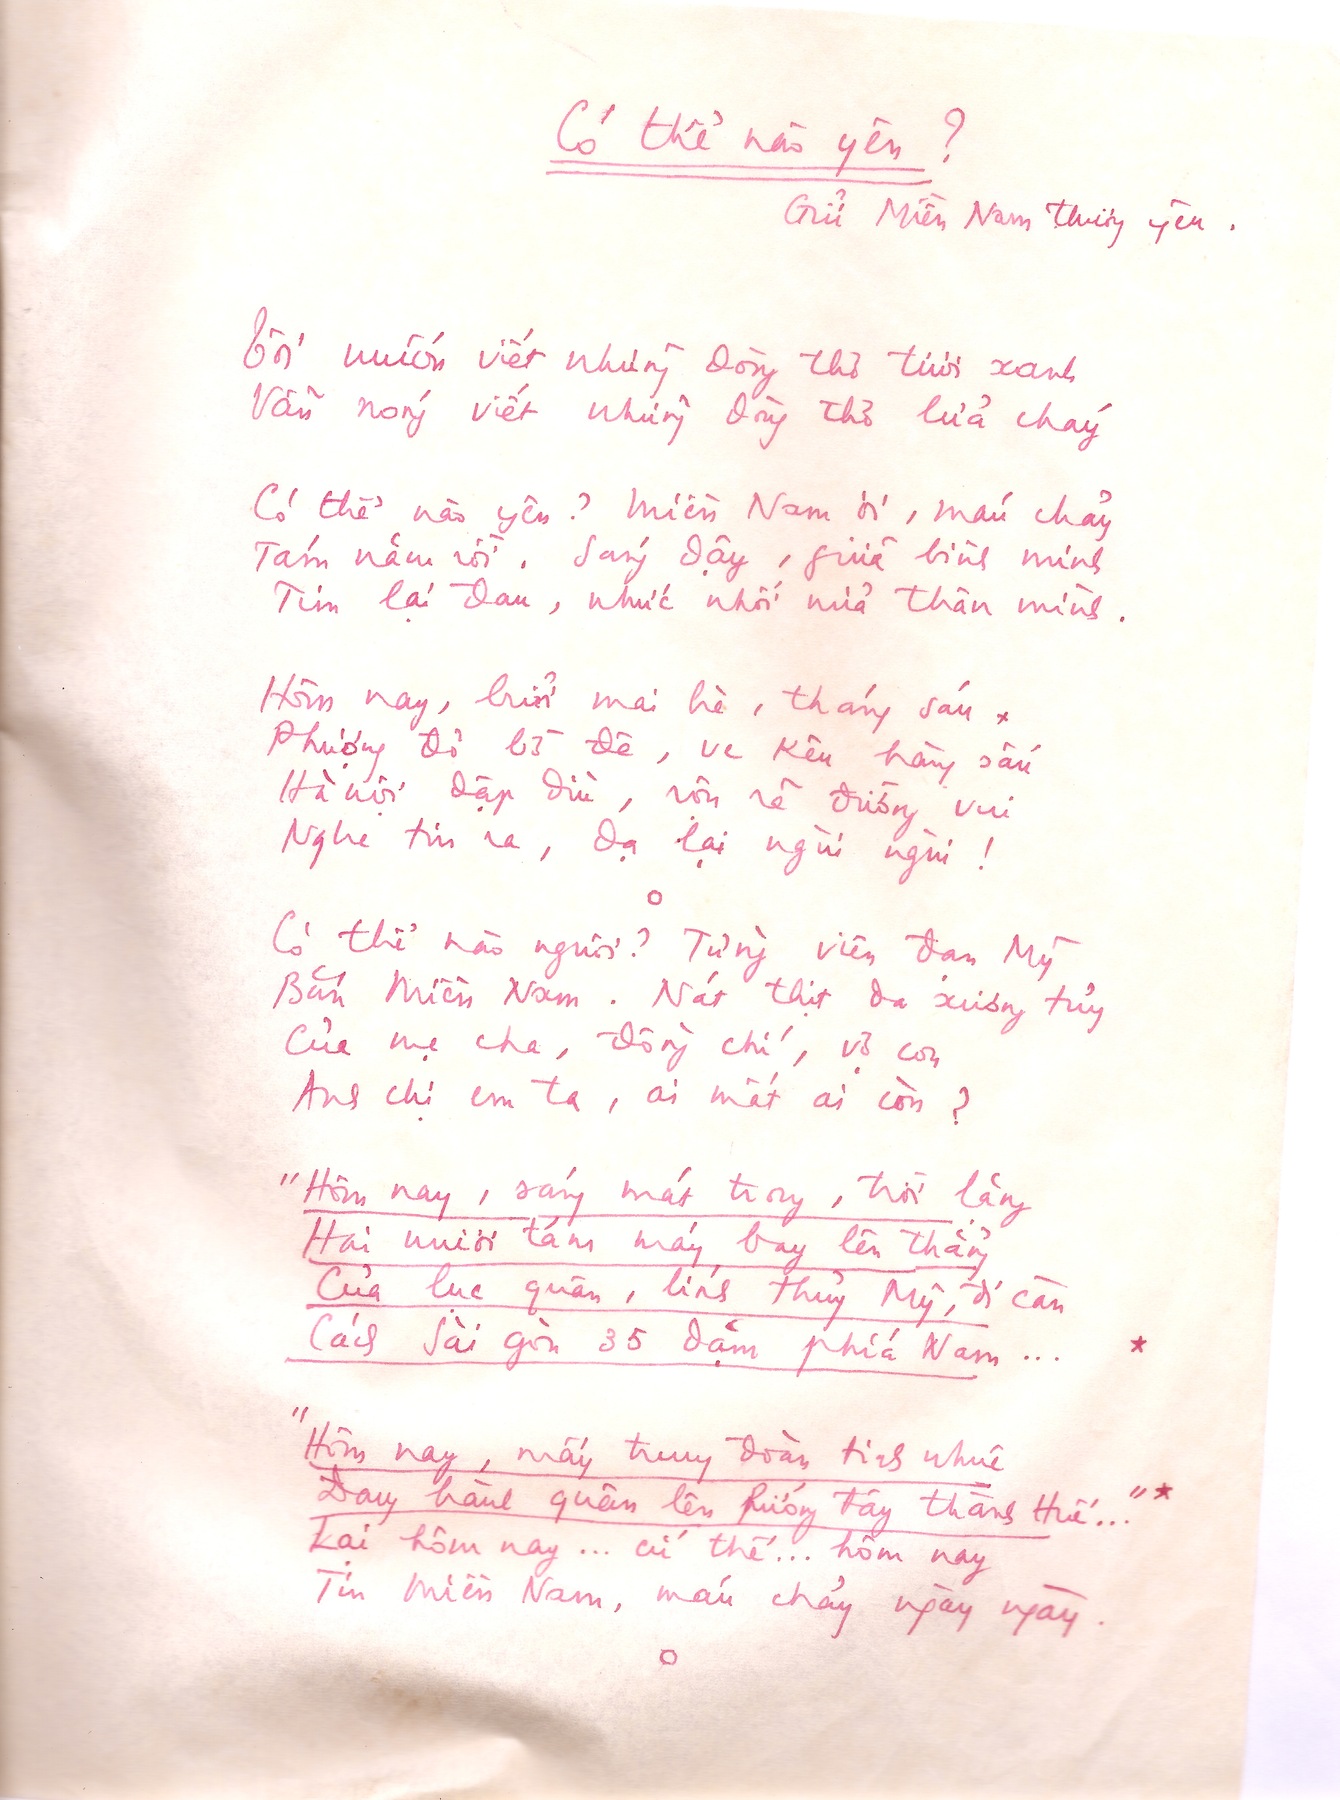 Có thể nào yên?
Gửi Miền Nam thương yêu.
Tôi muốn viết những dòng thơ tươi xanh
Vẫn nóng viết những dòng thơ lửa cháy
Có thể nào yên? Miền Nam ơi, máu chảy
Tám năm rồi. Sáng dậy, giữa bình minh
Tim lại đau, nhức nhối nửa thân mình.
Hôm nay, buổi mai hè, tháng sáu *
Phượng đỏ bờ đê, ve kêu hàng sấu
Hà nội dập dìu, rôn rã đường vui
Nghe tin ra, dạ lại ngùi ngùi!
o
Có thể nào nguôi? Từng viên đạn Mỹ
Bắn Miền Nam. Nát thịt da xương tủy
Của mẹ cha, đồng chí, vợ con
Anh chị em ta, ai mất ai còn?
"Hôm nay, sáng mát trong, trời lặng
Hai mươi tám máy bay lên thẳng
Của lục quân, lính thủy Mỹ, đi càn
Cách Sài gòn 35 dặm phía Nam... *
"Hôm nay, mấy trung đoàn tinh nhuệ
Đang hành quân lên hướng tây thành Huế..." *
Lại hôm nay... cứ thế... hôm nay
Tin Miền Nam, máu chảy ngày ngày.
o